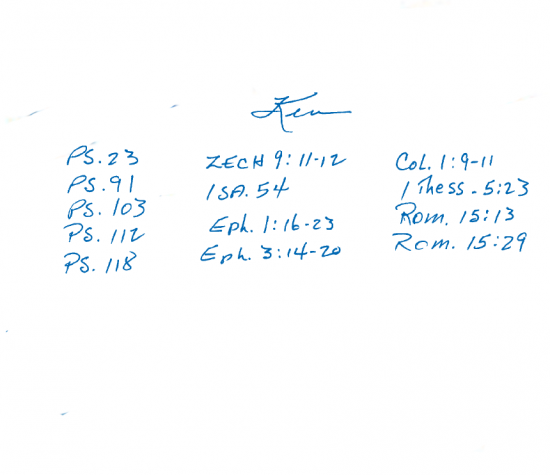 Ken
PS. 23
PS. 91
PS. 103
PS. 112
PS. 118
ZECH 9:11-12
ISA. 54
Eph. 1:16-23
Eph. 3:14-20
Col. 1:9-11
1 Thess. 5:23
Rom. 15:13
Rom. 15:29